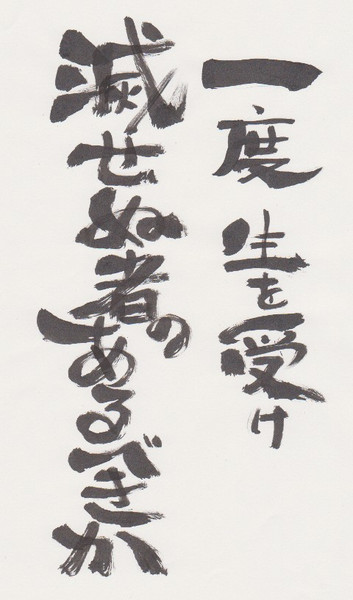 一度生を受け
滅せぬ者のあるべきか